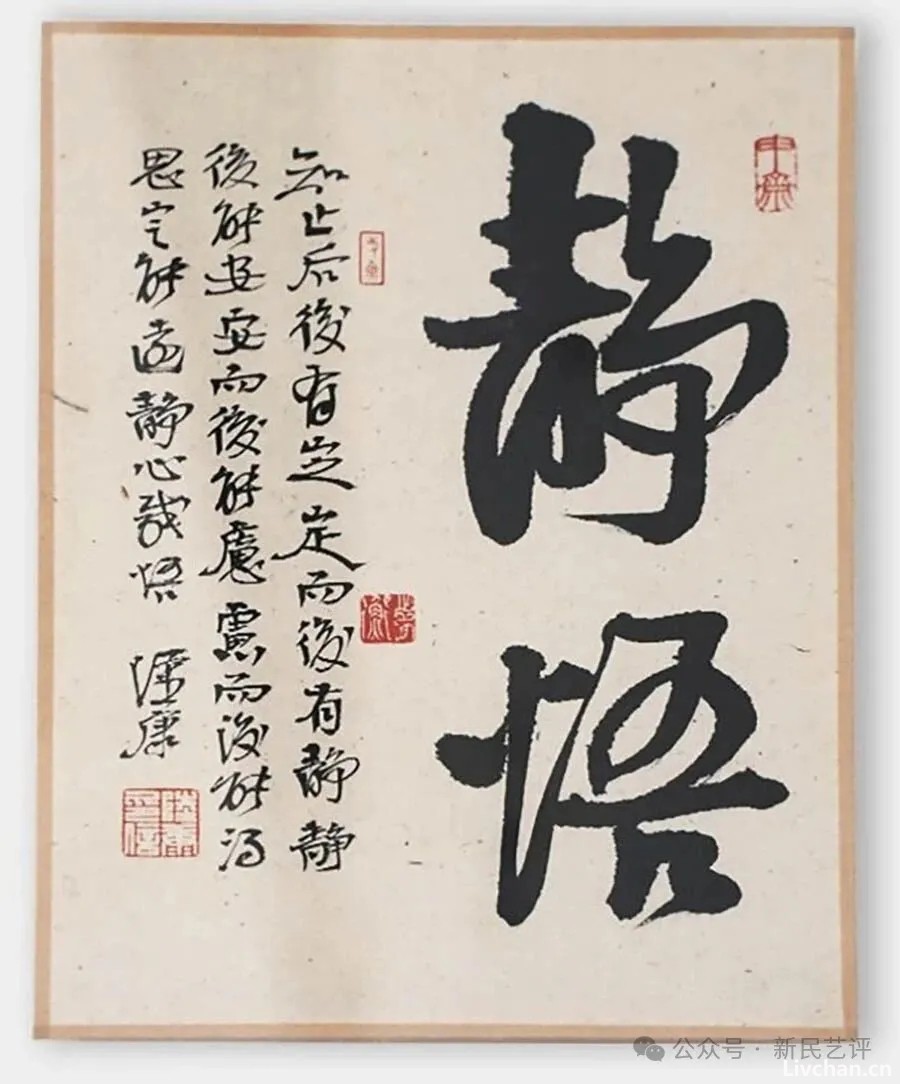 静悟
知止后後有定定而後有静静
後能安安而後能慮慮而後能得
思定能遠静心悟 康
公众号 · 新民艺评
Livchan.cn